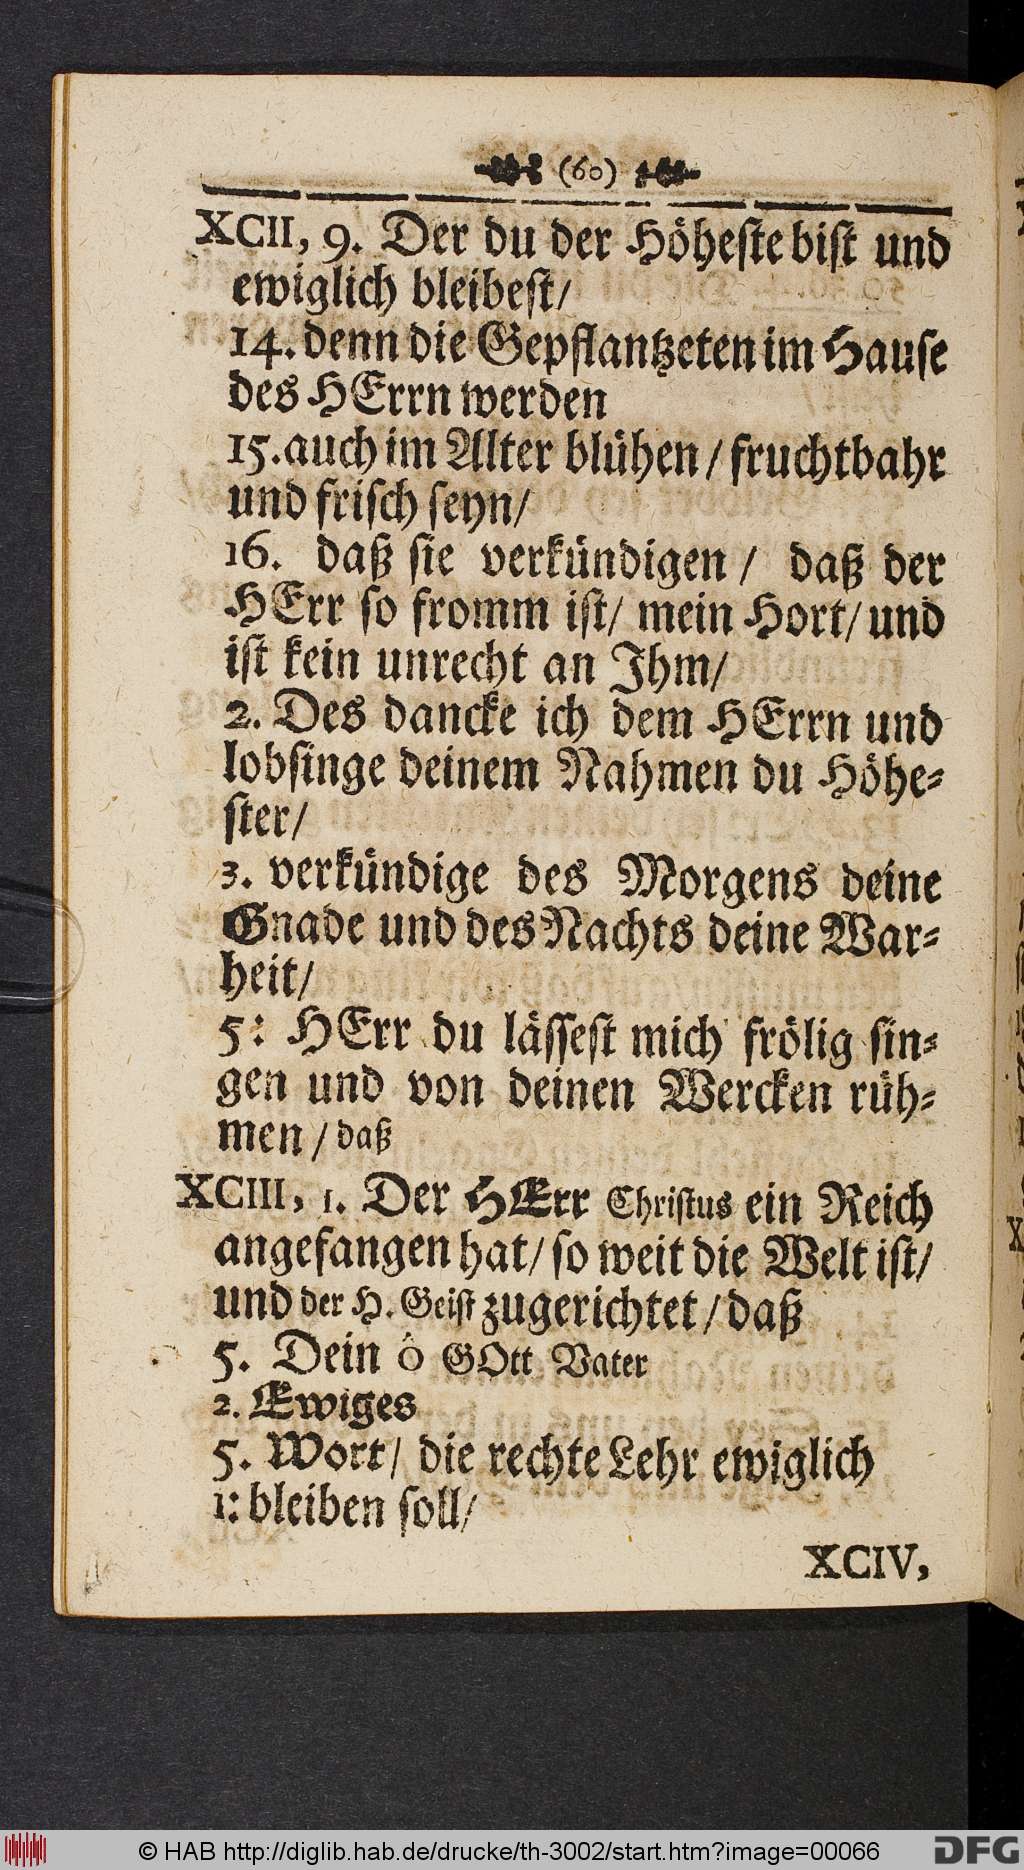 (60)
XCII, 9. Der du der Höheste bist und
ewiglich bleibest/
14. denn die Gepflantzeten im Hause
des HErrn werden
15. auch im Alter blühen / fruchtbahr
und frisch seyn/
16. daß sie verkündigen / daß der
HErr so fromm ist/ mein Hort/ und
ist kein unrecht an Ihm/
2. Des dancke ich dem HErrn und
lobsinge deinem Nahmen du Höhe-
ster/
3. verkündige des Morgens deine
Gnade und des Nachts deine War-
heit/
5: HErr du lässest mich frölig sin-
gen und von deinen Wercken rüh-
men / daß
XCIII, 1. Der HErr Christus ein Reich
angefangen hat/ so weit die Welt ist/
und der H. Geist zugerichtet / daß
5. Dein ô GOtt Vater
2. Ewiges
5. Wort/ die rechte Lehr ewiglich
1: bleiben soll/
XCIV,
© HAB http://diglib.hab.de/drucke/th-3002/start.htm?image=00066
DFG